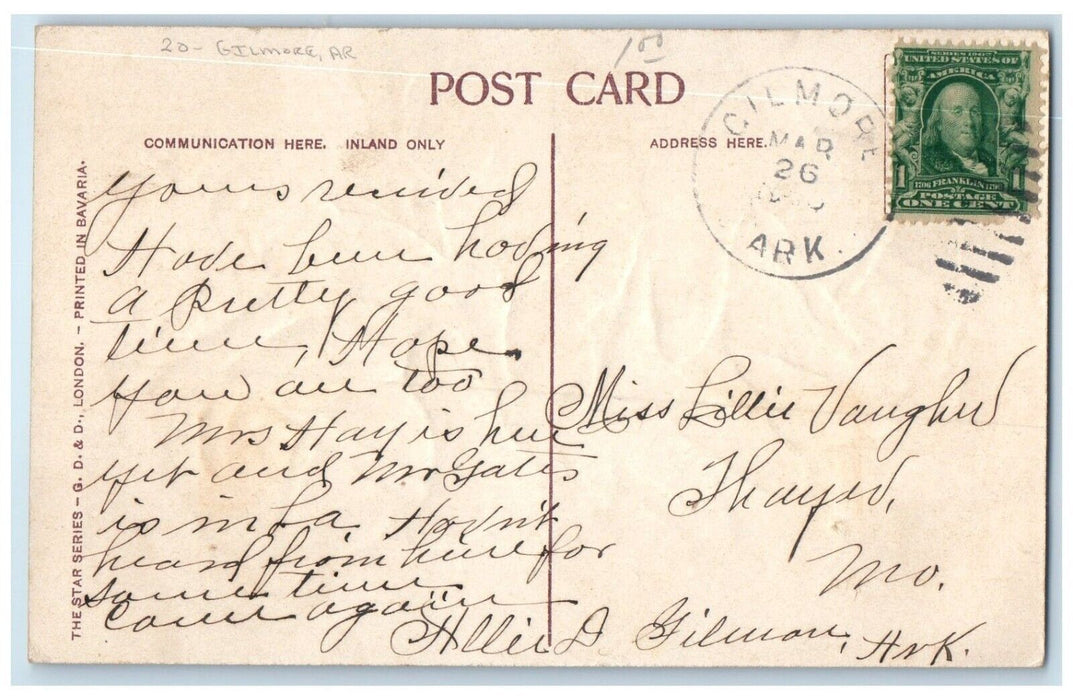 20- GILMORE, AR
1 00
POST CARD
COMMUNICATION HERE. INLAND ONLY
ADDRESS HERE.
THE STAR SERIES - G. D. & D., LONDON. - PRINTED IN BAVARIA.
GILMORE
MAR
26
ARK.
SERIES 1902
UNITED STATES OF
AMERICA
1706 FRANKLIN 1790
1 POSTAGE 1
ONE CENT
Yours received
Have been having
a pretty good
time, Hope
you are too
Mrs Hay is here
yet and Mr Gates
is in La Hadn't
heard from here for
some time
come again
Allie D. Gilmore, Ark.
Miss Lillie Vaughn
Thayer,
Mo.